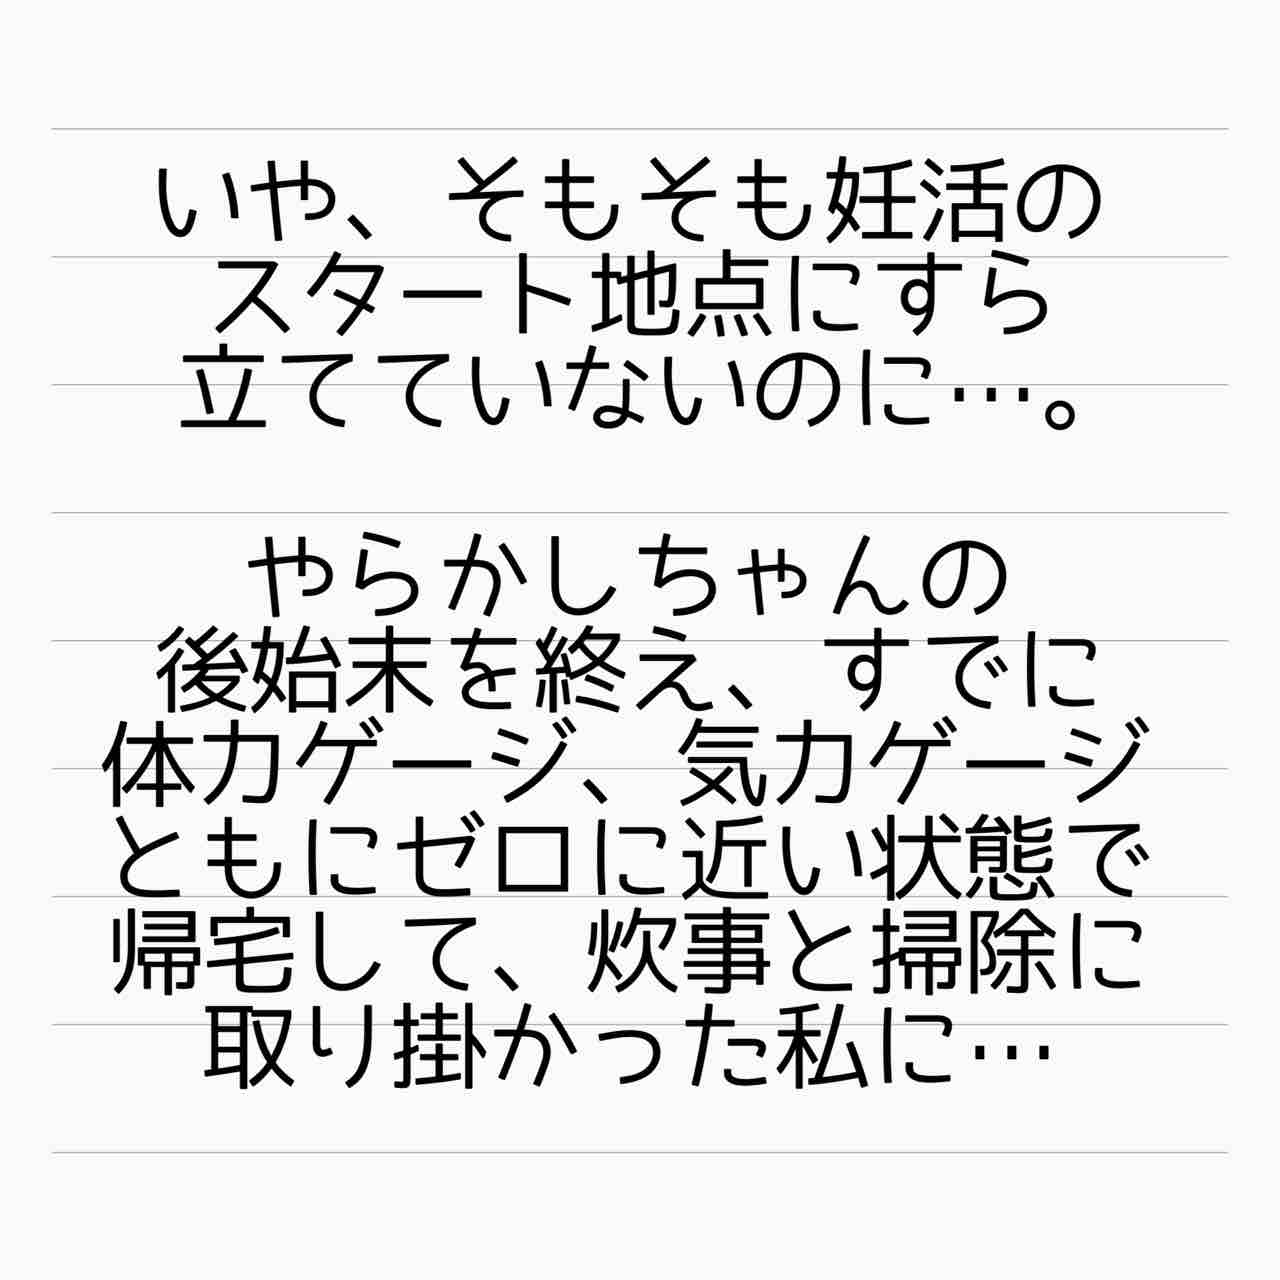 いや、そもそも妊活の
スタート地点にすら
立てていないのに…。
やらかしちゃんの
後始末を終え、すでに
体力ゲージ、気力ゲージ
ともにゼロに近い状態で
帰宅して、炊事と掃除に
取り掛かった私に…